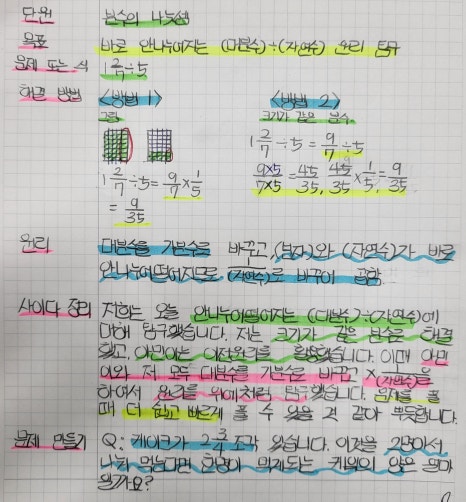 단원 분수의 나눗셈
목표 바로 안나누어지는 (대분수)÷(자연수) 원리 탐구
문제 또는 식 1 2/7 ÷5
해결 방법 <방법 1> <방법 2>
그림 크기가 같은 분수
1 2/7 ÷5 = 9/7 ÷5
1 2/7 ÷5 = 9/7 × 1/5 9×5/7×5 = 45/35, 45/35 × 1/5 = 9/35
= 9/35
원리 대분수를 가분수로 바꾸고, (분자)와 (자연수)가 바로
안나누어떨어지므로 1/(자연수)로 바꾸어 곱함.
사이다 정리 저희는 오늘 안나누어떨어지는 (대분수)÷(자연수)에
대해 탐구했습니다. 저는 크기가 같은 분수로 해결
했고, 아민이는 이전원리를 활용했습니다. 이때 아민
이와 저 모두 대분수를 가분수로 바꾸고 × 1/(자연수)을
하여서 원리를 위에처럼 탐구했습니다. 문제를 풀
때 더 쉽고 빠르게 풀 수 있을 것 같아 뿌듯합니다.
문제 만들기 Q: 케이크가 2 3/4 조각 있습니다. 이것을 2명이서
나눠 먹는다면 한명이 먹게되는 케잌의 양은 얼마
일까요?